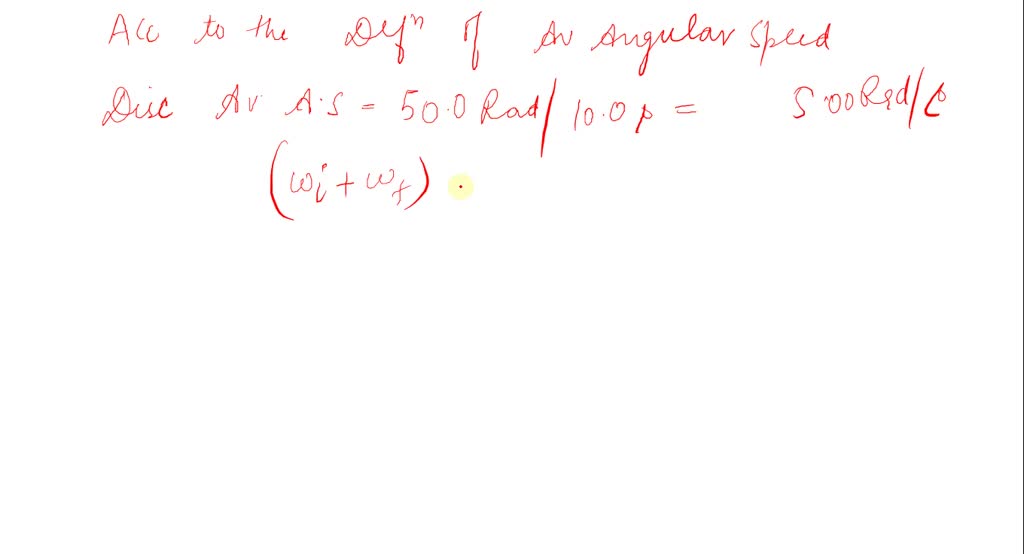 Acc to the Defⁿ of Av Angular Speed
Disc Av A.S = 50.0 Rad/10.0 s = 5.00 Rad/s
(ωi + ωf)